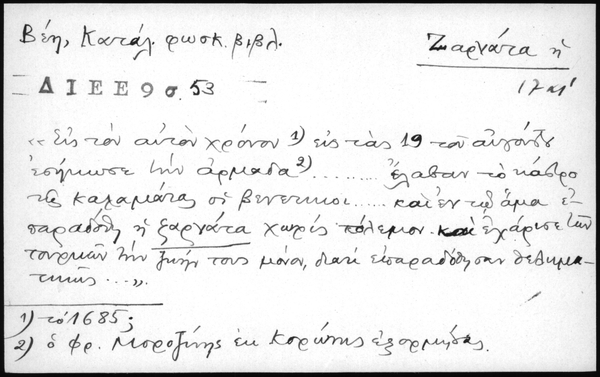 Βέη, Κατάλ. φωσκ. βιβλ.
Ζαρνάτα ἡ
ΔΙΕΕ 9 σ. 53
17 αἰ
«Εἰς τὸν αὐτὸν χρόνον 1) εἰς τὰς 19 τοῦ αὐγούστου
ἐσήκωσε τὴν ἀρμάδα 2) ......... ἔλαβαν τὸ κάστρο
τῆς καλαμάτας οἱ βενετικοι ..... καὶ ἐν τῷ ἅμα ἐ-
παραδόθη ἡ ζαρνάτα χωρὶς πόλεμον καὶ ἐχάρισε τῶν
τουρκῶν τὴν ζωήν τους μόνον, διατὶ ἐπαραδόθησαν θελημα-
τικῶς ...».
1) τὸ 1685;
2) ὁ Φρ. Μοροζίνης ἐκ Κορώνης ἐξορμήσας.